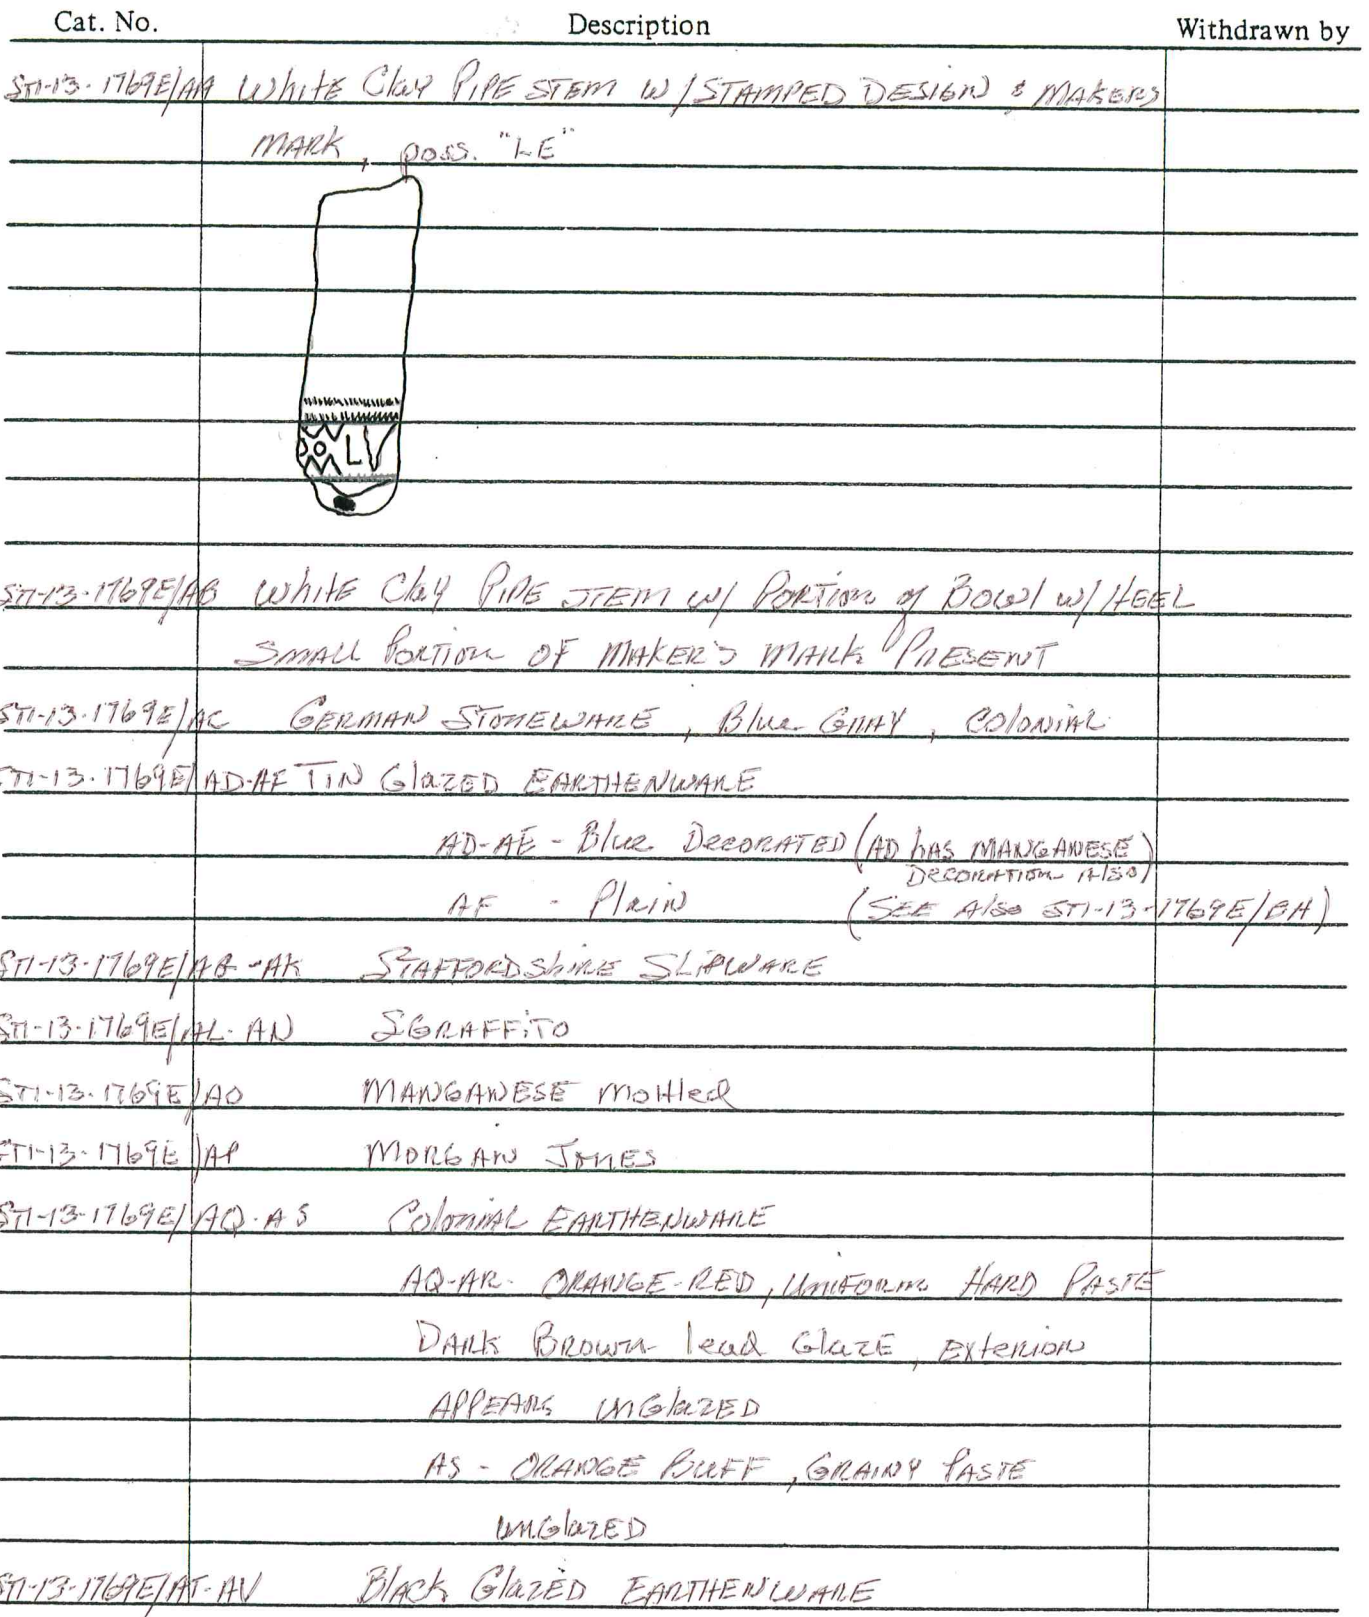 Cat. No. Description Withdrawn by
ST1-13-1769E/AA White Clay Pipe STEM W/STAMPED DESIGN & MAKERS
MARK, poss. "LE"
LV
ST1-13-1769E/AB White Clay PIPE STEM W/ PORTION of BOWl W/HEEL
SMAll PORTION OF MAKER'S MARK PRESENT
ST1-13-1769E/AC GERMAN STONEWARE, Blue GRAY, COlONIAL
ST1-13-1769E/AD-AF TIN GlAZED EARTHENWARE
AD-AE - Blue DECORATED (AD hAS MANGANESE
DECORATION AlSO)
AF - PlAiN (SEE AlSO ST1-13-1769E/BH)
ST1-13-1769E/AG-AK STAFFORDShiRE SLIPWARE
ST1-13-1769E/AL-AN SGRAFFiTO
ST1-13-1769E/AO MANGANESE Mottled
ST1-13-1769E/AP MORGAN JONES
ST1-13-1769E/AQ-AS COlONIAL EARTHENWARE
AQ-AR- ORANGE-RED, UNIFORM HARD PASTE
DARK BROWN lead GlAZE, EXTERIOR
APPEARS UNGlAZED
AS - ORANGE BUFF, GRAINY PASTE
UNGlAZED
ST1-13-1769E/AT-AV BlACK GlAZED EARTHENWARE